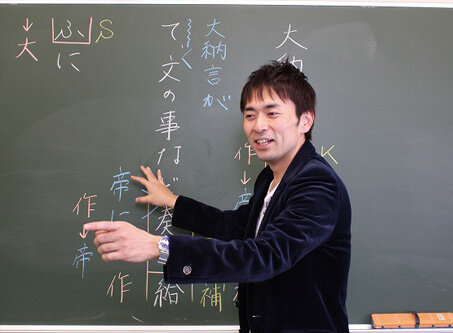 K
大納
作↓帝
大納言が
補
て、文の事など奏
給
帝に
作
作↓帝
S
ふに
↓大